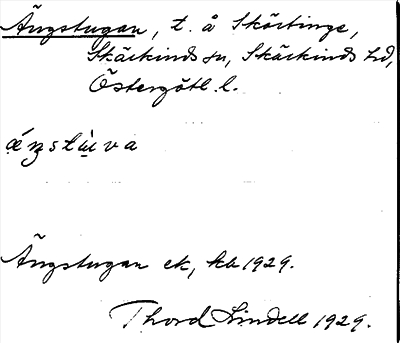 Ängstugan, t. å Skörtinge,
Skärkinds sn, Skärkinds hd,
Östergötl. l.
ǽŋstùva
Ängstugan ek, kb 1929.
Thord Lindell 1929.